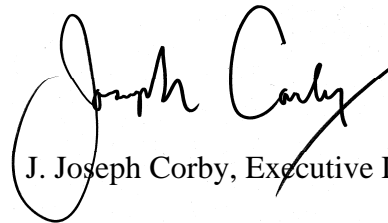 Joseph Corby
J. Joseph Corby, Executive